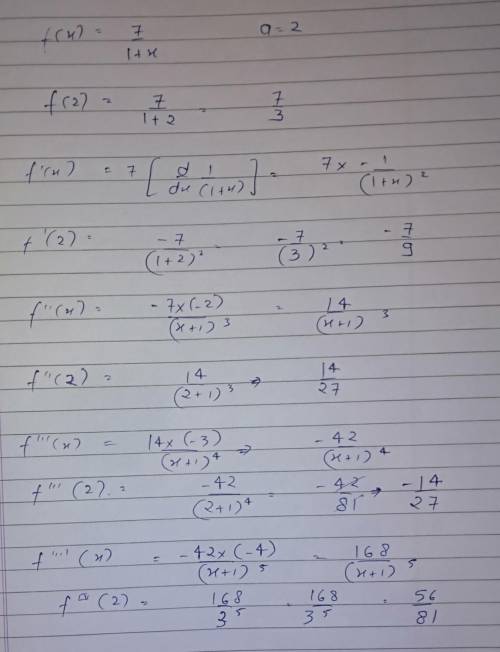 f(x) = 7/(1+x) a = 2
f(2) = 7/(1+2) = 7/3
f'(x) = 7 [d/dx 1/(1+x)] = 7 x -1/(1+x)²
f'(2) = -7/(1+2)² = -7/(3)² = -7/9
f''(x) = -7x(-2)/(x+1)³ = 14/(x+1)³
f''(2) = 14/(2+1)³ ⇒ 14/27
f'''(x) = 14x(-3)/(x+1)⁴ ⇒ -42/(x+1)⁴
f'''(2) = -42/(2+1)⁴ = -42/81 ⇒ -14/27
f''''(x) = -42x(-4)/(x+1)⁵ = 168/(x+1)⁵
f''''(2) = 168/3⁵ = 168/3⁵ = 56/81